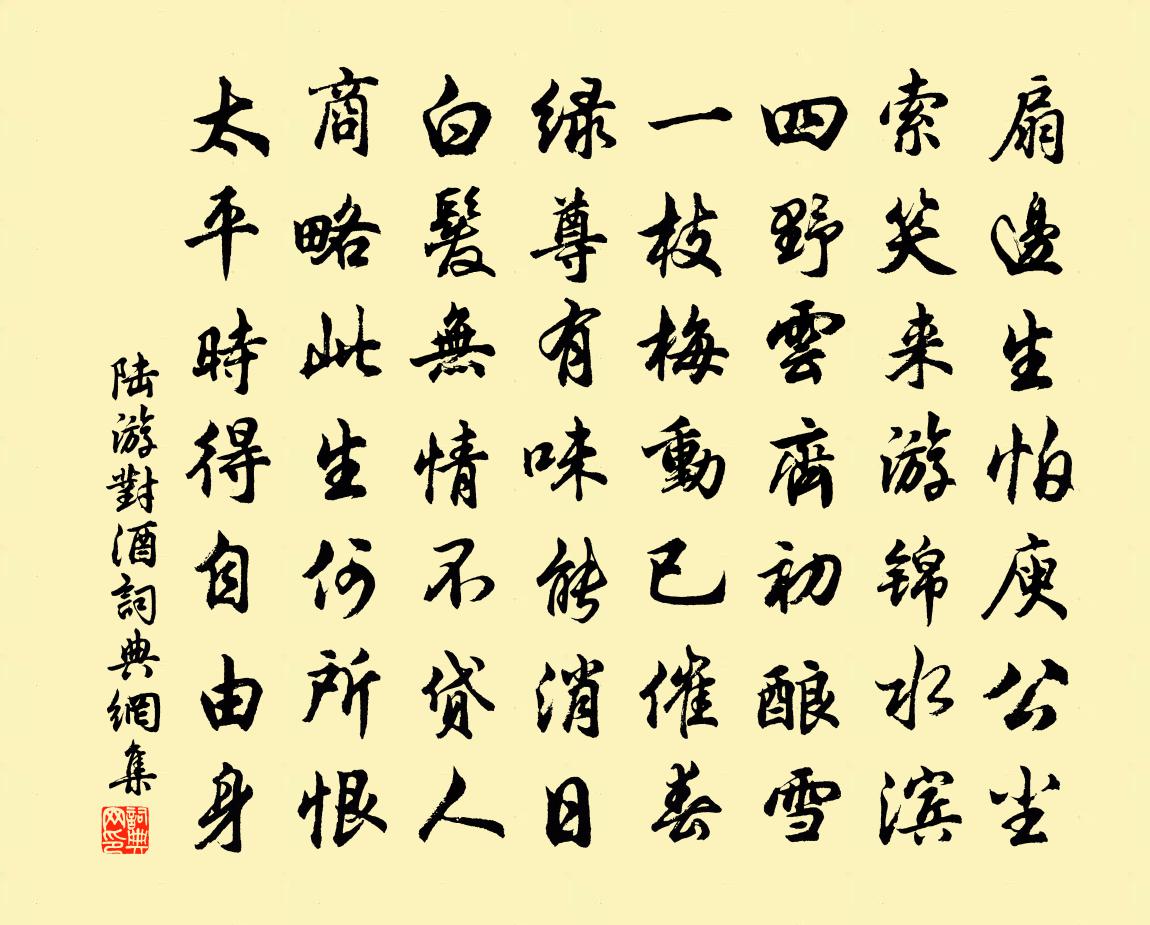 扇邊生怕庾公尘
索笑来游锦水滨
四野雲齊初酿雪
一枝梅動已催春
绿尊有味能消日
白髮無情不贷人
商略此生何所恨
太平時得自由身
陆游對酒詞典網集
詞典网印